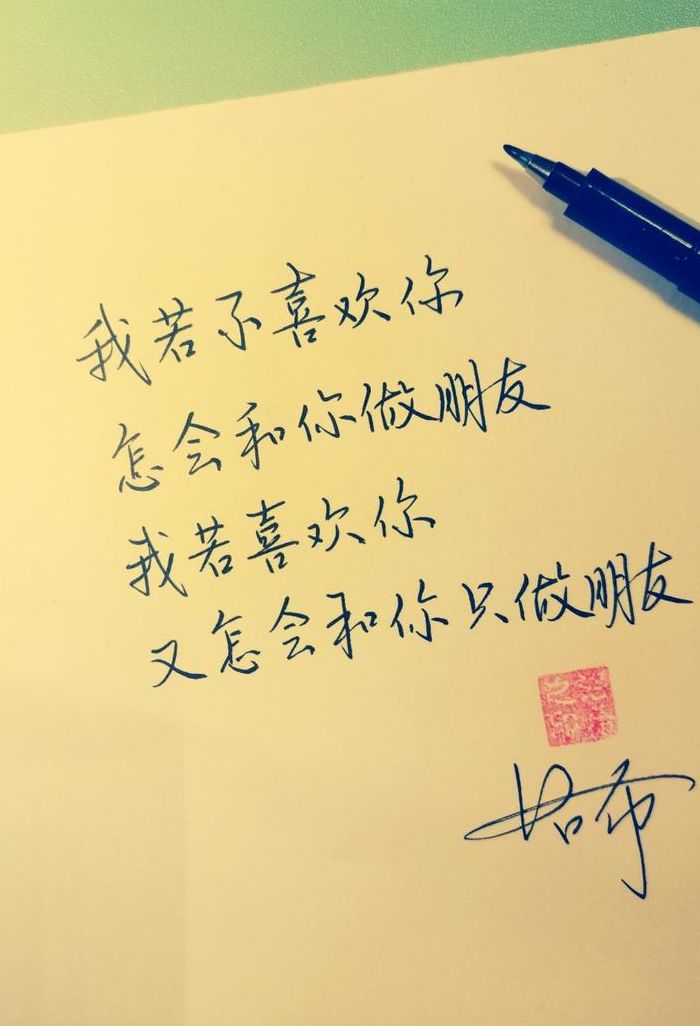 我若不喜欢你
怎会和你做朋友
我若喜欢你
又怎会和你只做朋友